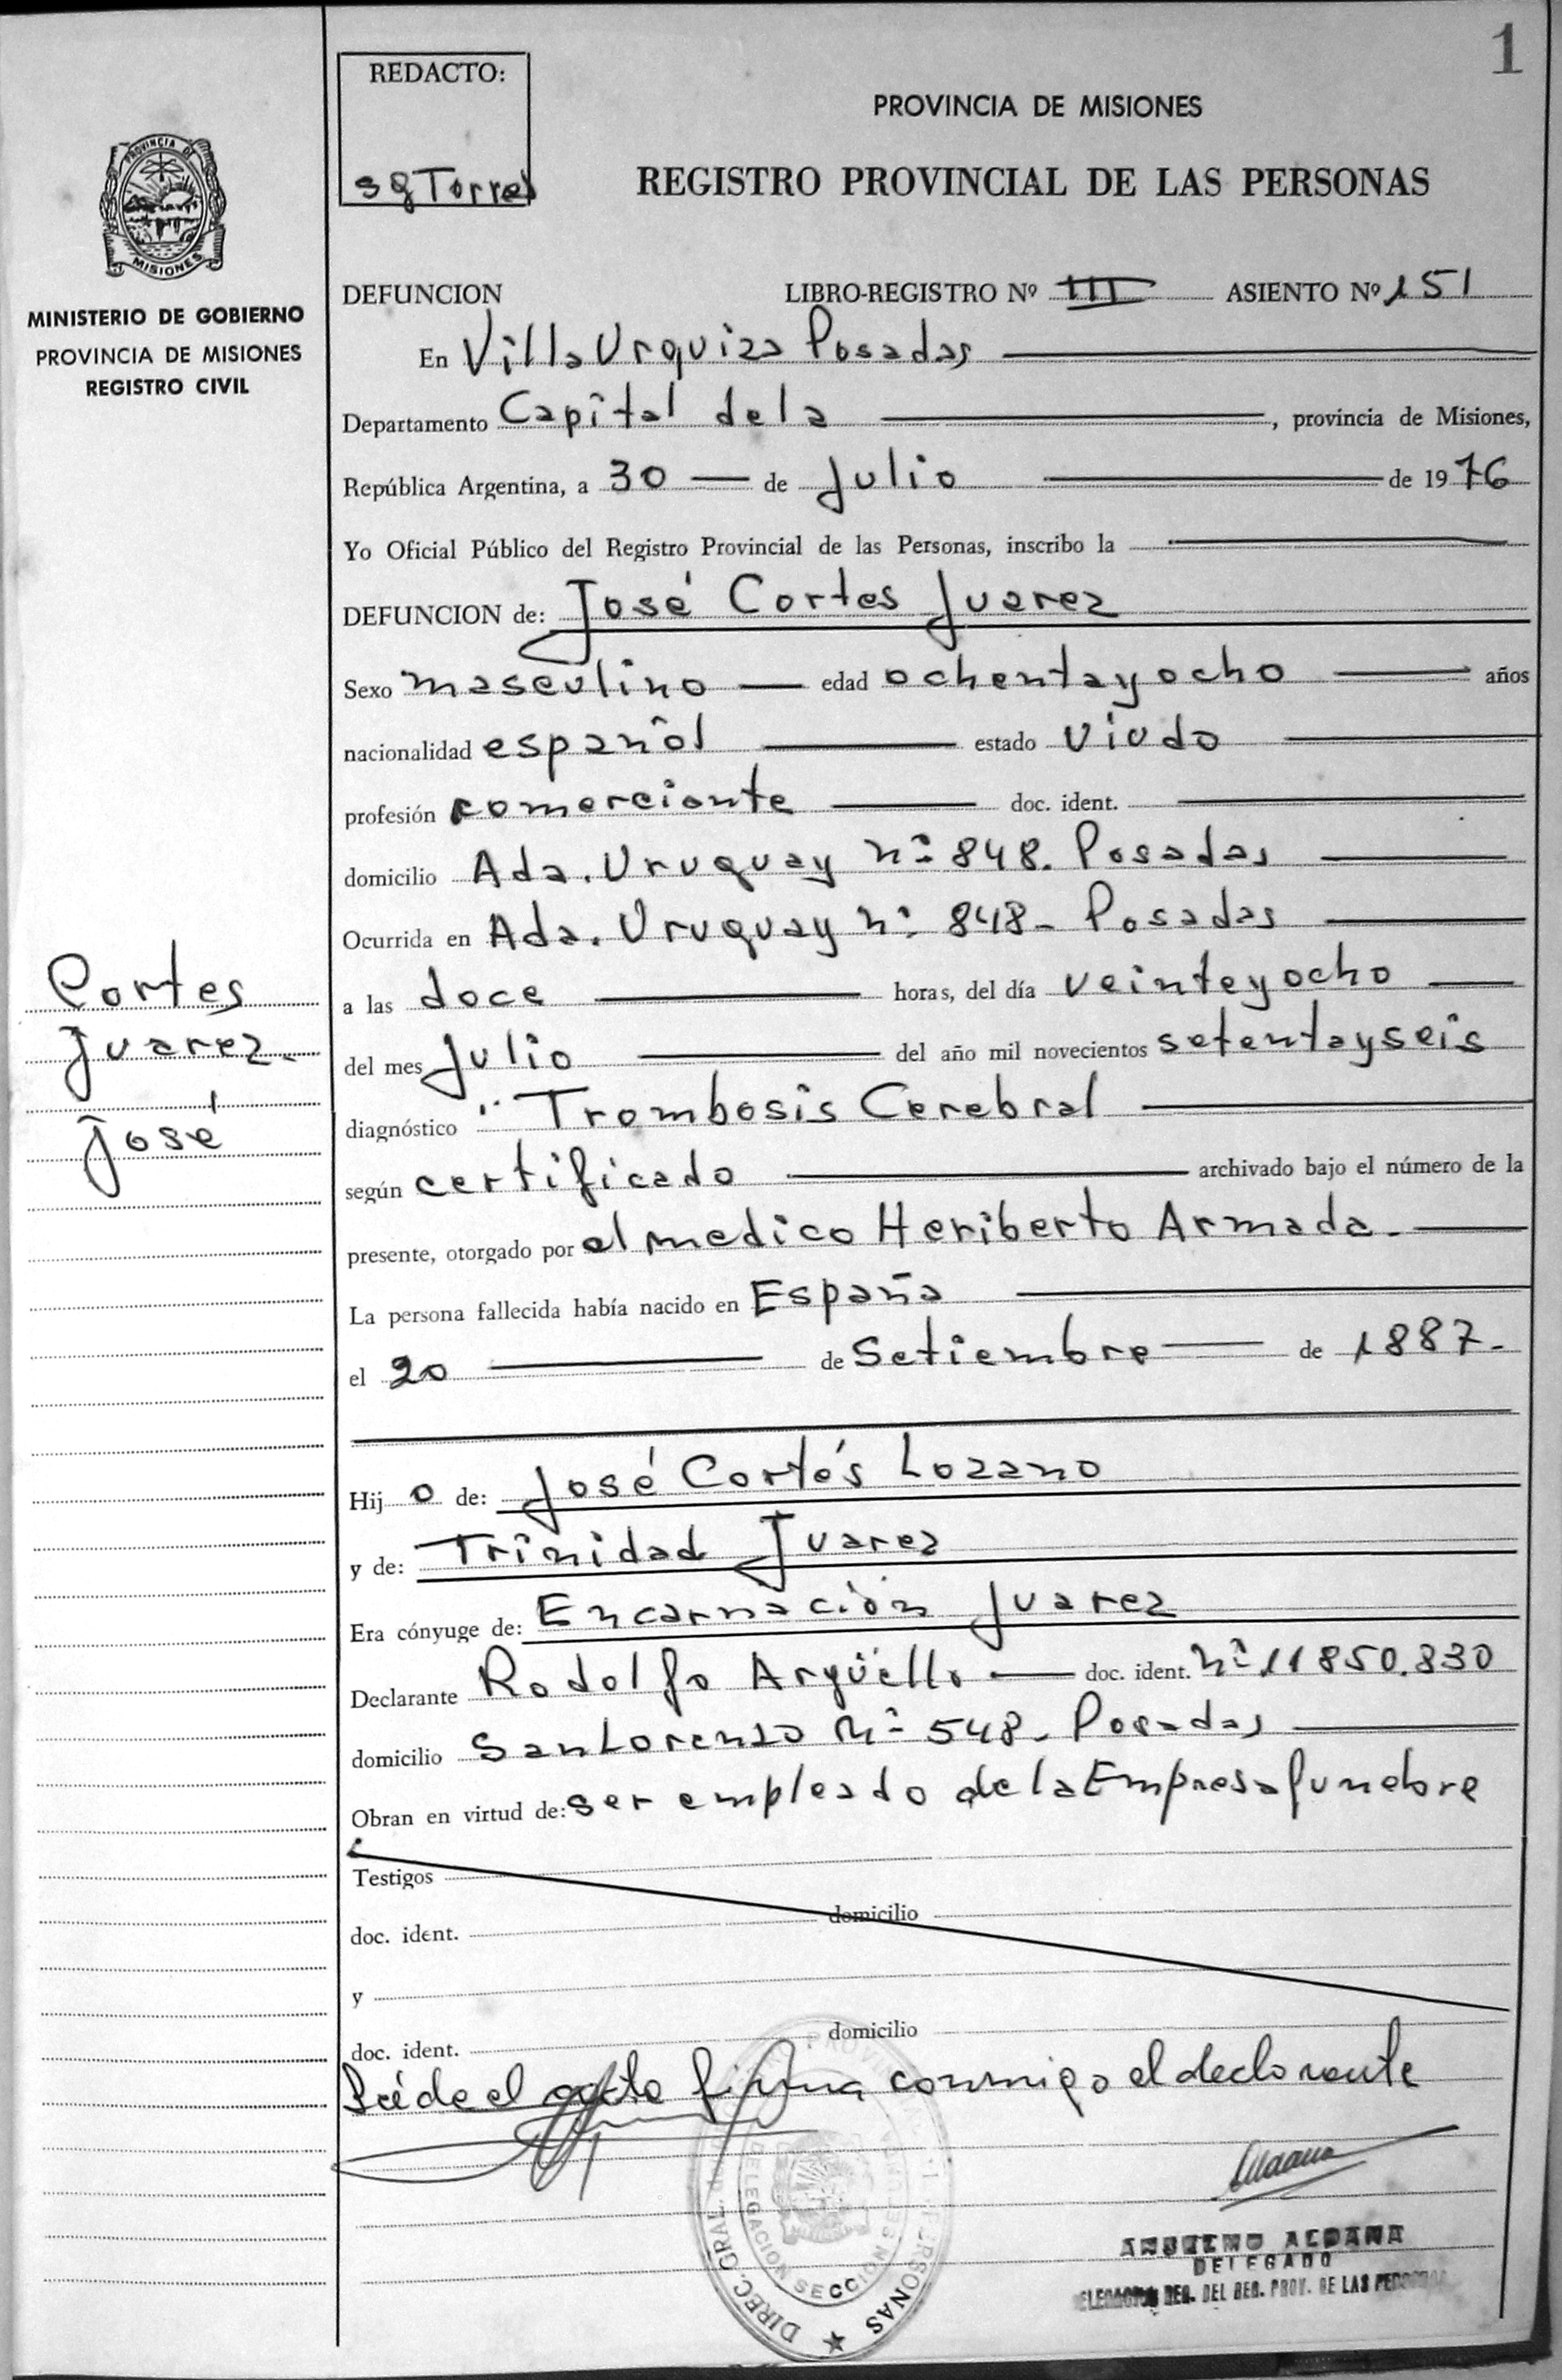 1
REDACTO:
sg Torres
PROVINCIA DE MISIONES
REGISTRO PROVINCIAL DE LAS PERSONAS
PROVINCIA DE
MISIONES
MINISTERIO DE GOBIERNO
PROVINCIA DE MISIONES
REGISTRO CIVIL
DEFUNCION LIBRO-REGISTRO Nº III ASIENTO Nº 151
En Villa Urquiza Posadas
Departamento Capital dela , provincia de Misiones,
República Argentina, a 30 de Julio de 1976
Yo Oficial Público del Registro Provincial de las Personas, inscribo la
DEFUNCION de: José Cortes Juarez
Sexo masculino edad ochentayocho años
nacionalidad español estado viudo
profesión comerciante doc. ident.
domicilio Ada. Uruguay nº 848. Posadas
Ocurrida en Ada. Uruguay nº 848- Posadas
a las doce horas, del día veinteyocho
del mes Julio del año mil novecientos setentayseis
diagnóstico " Trombosis Cerebral
según certificado archivado bajo el número de la
presente, otorgado por el medico Heriberto Armada.
La persona fallecida había nacido en España
el 20 de Setiembre de 1887.
Hij o de: José Cortés Lozano
y de: Trinidad Juarez
Era cónyuge de: Encarnación Juarez
Declarante Rodolfo Argüello doc. ident. nº 11850.830
domicilio San Lorenzo Nº 548- Posadas
Obran en virtud de: ser empleado de la Empresa funebre
Testigos
doc. ident. domicilio
y
doc. ident. domicilio
Cortes
Juarez.
José
Leída el acta firma conmigo el declarante
ANSELMO ALDANA
DELEGADO
DELEGACION REG. DEL REG. PROV. DE LAS PERSONAS
DIREC. GRAL
PERSONAS
DELEGACION SECCION